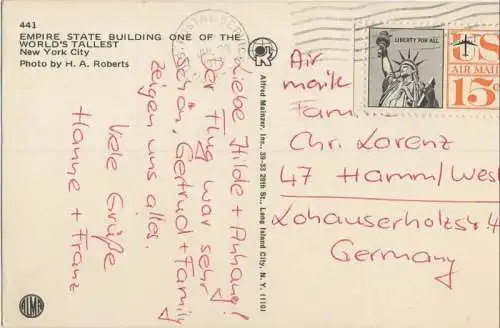 441
EMPIRE STATE BUILDING ONE OF THE
WORLD'S TALLEST
New York City
Photo by H. A. Roberts
Liebe Hilde + Anhang!
Der Flug war sehr
schön, Gertrud + Family
zeigen uns alles.
Viele Grüße
Hanne + Franz
ALMA
Alfred Mainzer, Inc., 39-33 29th St., Long Island City, N. Y. 11101
LIBERTY FOR ALL
US
AIR MAIL
15c
Air
maile
Chr. Lorenz
47 Hamm/West
Lohauserholzstr. 4
Germany